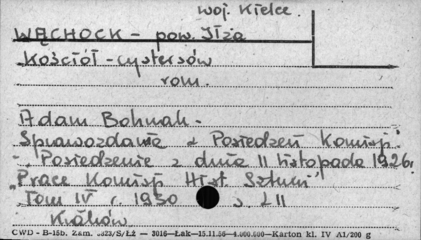 woj. Kielce.
WĄCHOCK - pow. Iłża
Kościół - cystersów
rom.
Adam Bohnak -
Sprawozdanie z Posiedzeń Komisji.
- Posiedzenie z dnia 11 listopada 1926r.
"Prace Komisji Hist. Sztuki"
Tom IV r. 1930 s. LII
Kraków
CWD - B-15b. Zam. 5823/S/ŁŻ — 3016—Łak—15.11.56—4.000.000—Karton kl. IV A1/200 g